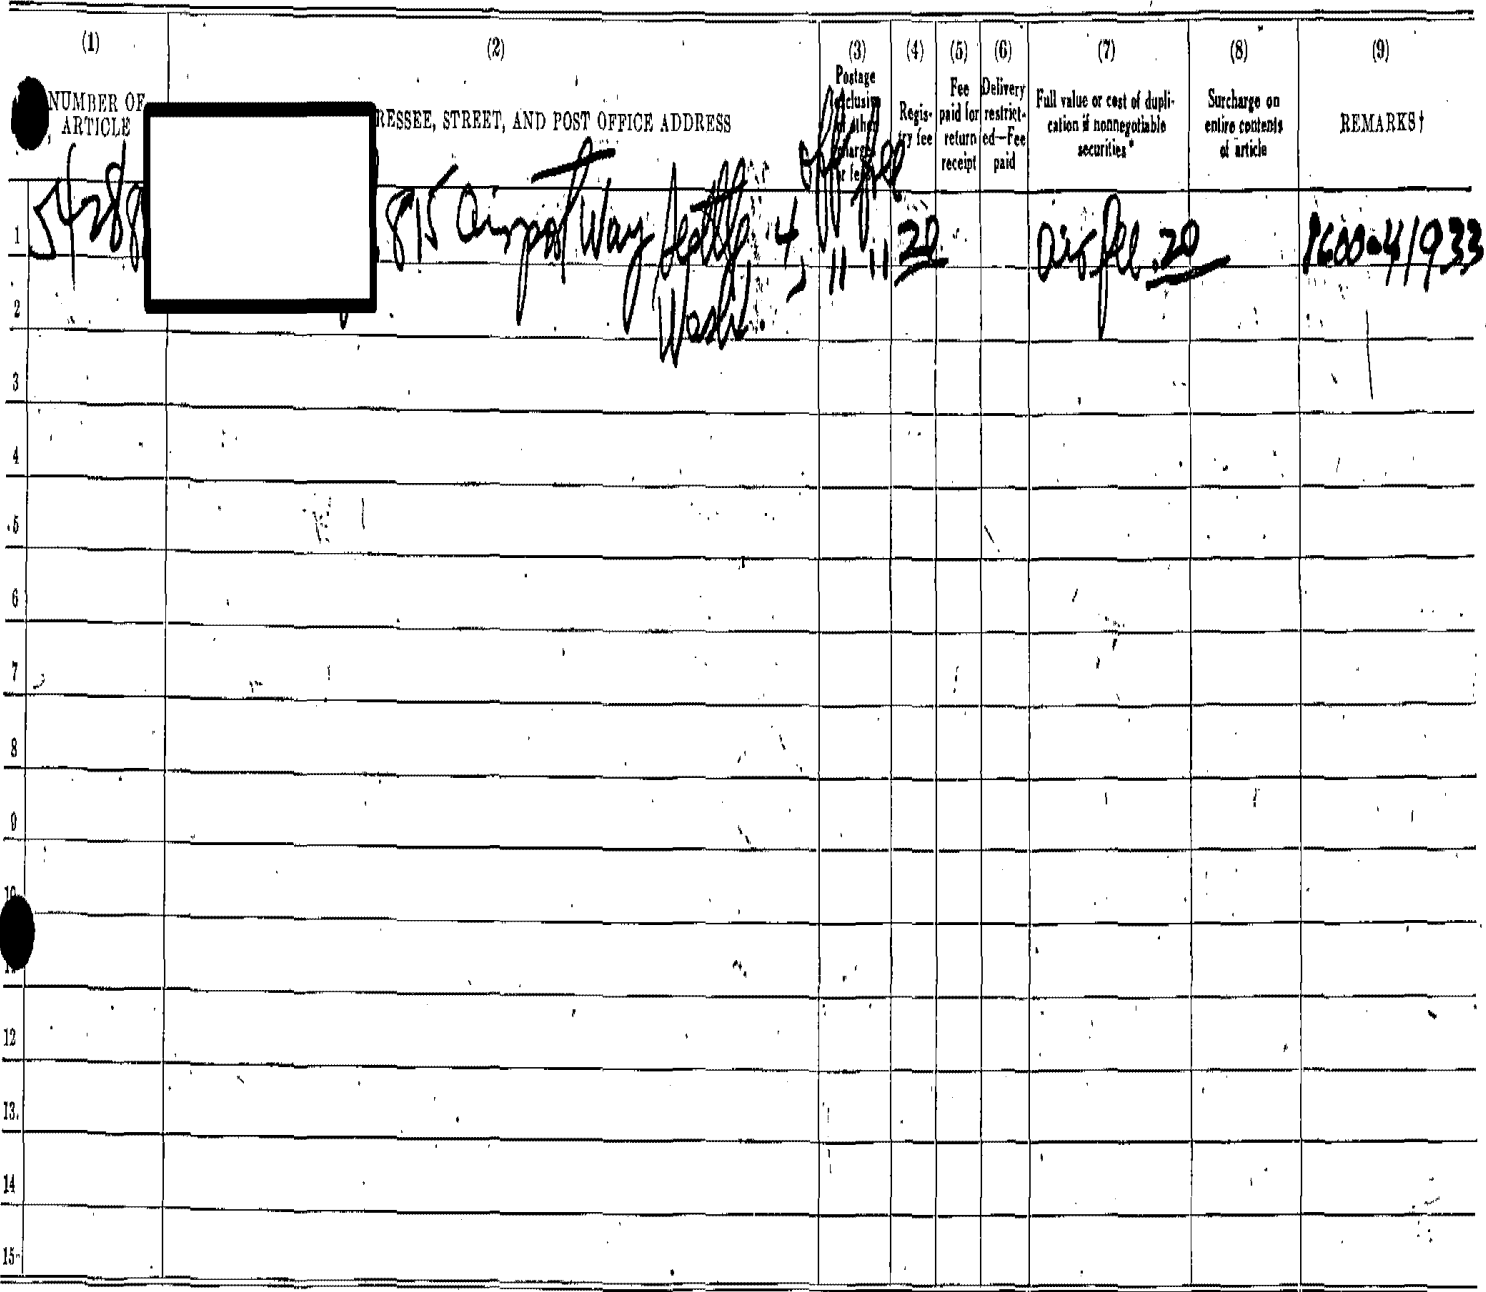 (1) (2) (3) (4) (5) (6) (7) (8) (9)
NUMBER OF ARTICLE
RESSEE, STREET, AND POST OFFICE ADDRESS
Postage
Regis-
try fee
Fee
paid for
return
receipt
Delivery
restrict-
ed—Fee
paid
Full value or cost of dupli-
cation if nonnegotiable
securities*
Surcharge on
entire contents
of article
REMARKS†
off fee
1 54288 815 Airport Way Seattle 4, " " 20 air fee .20 1600-41933
Wash.
2
3
4
5
6
7
8
9
10
12
13
14
15